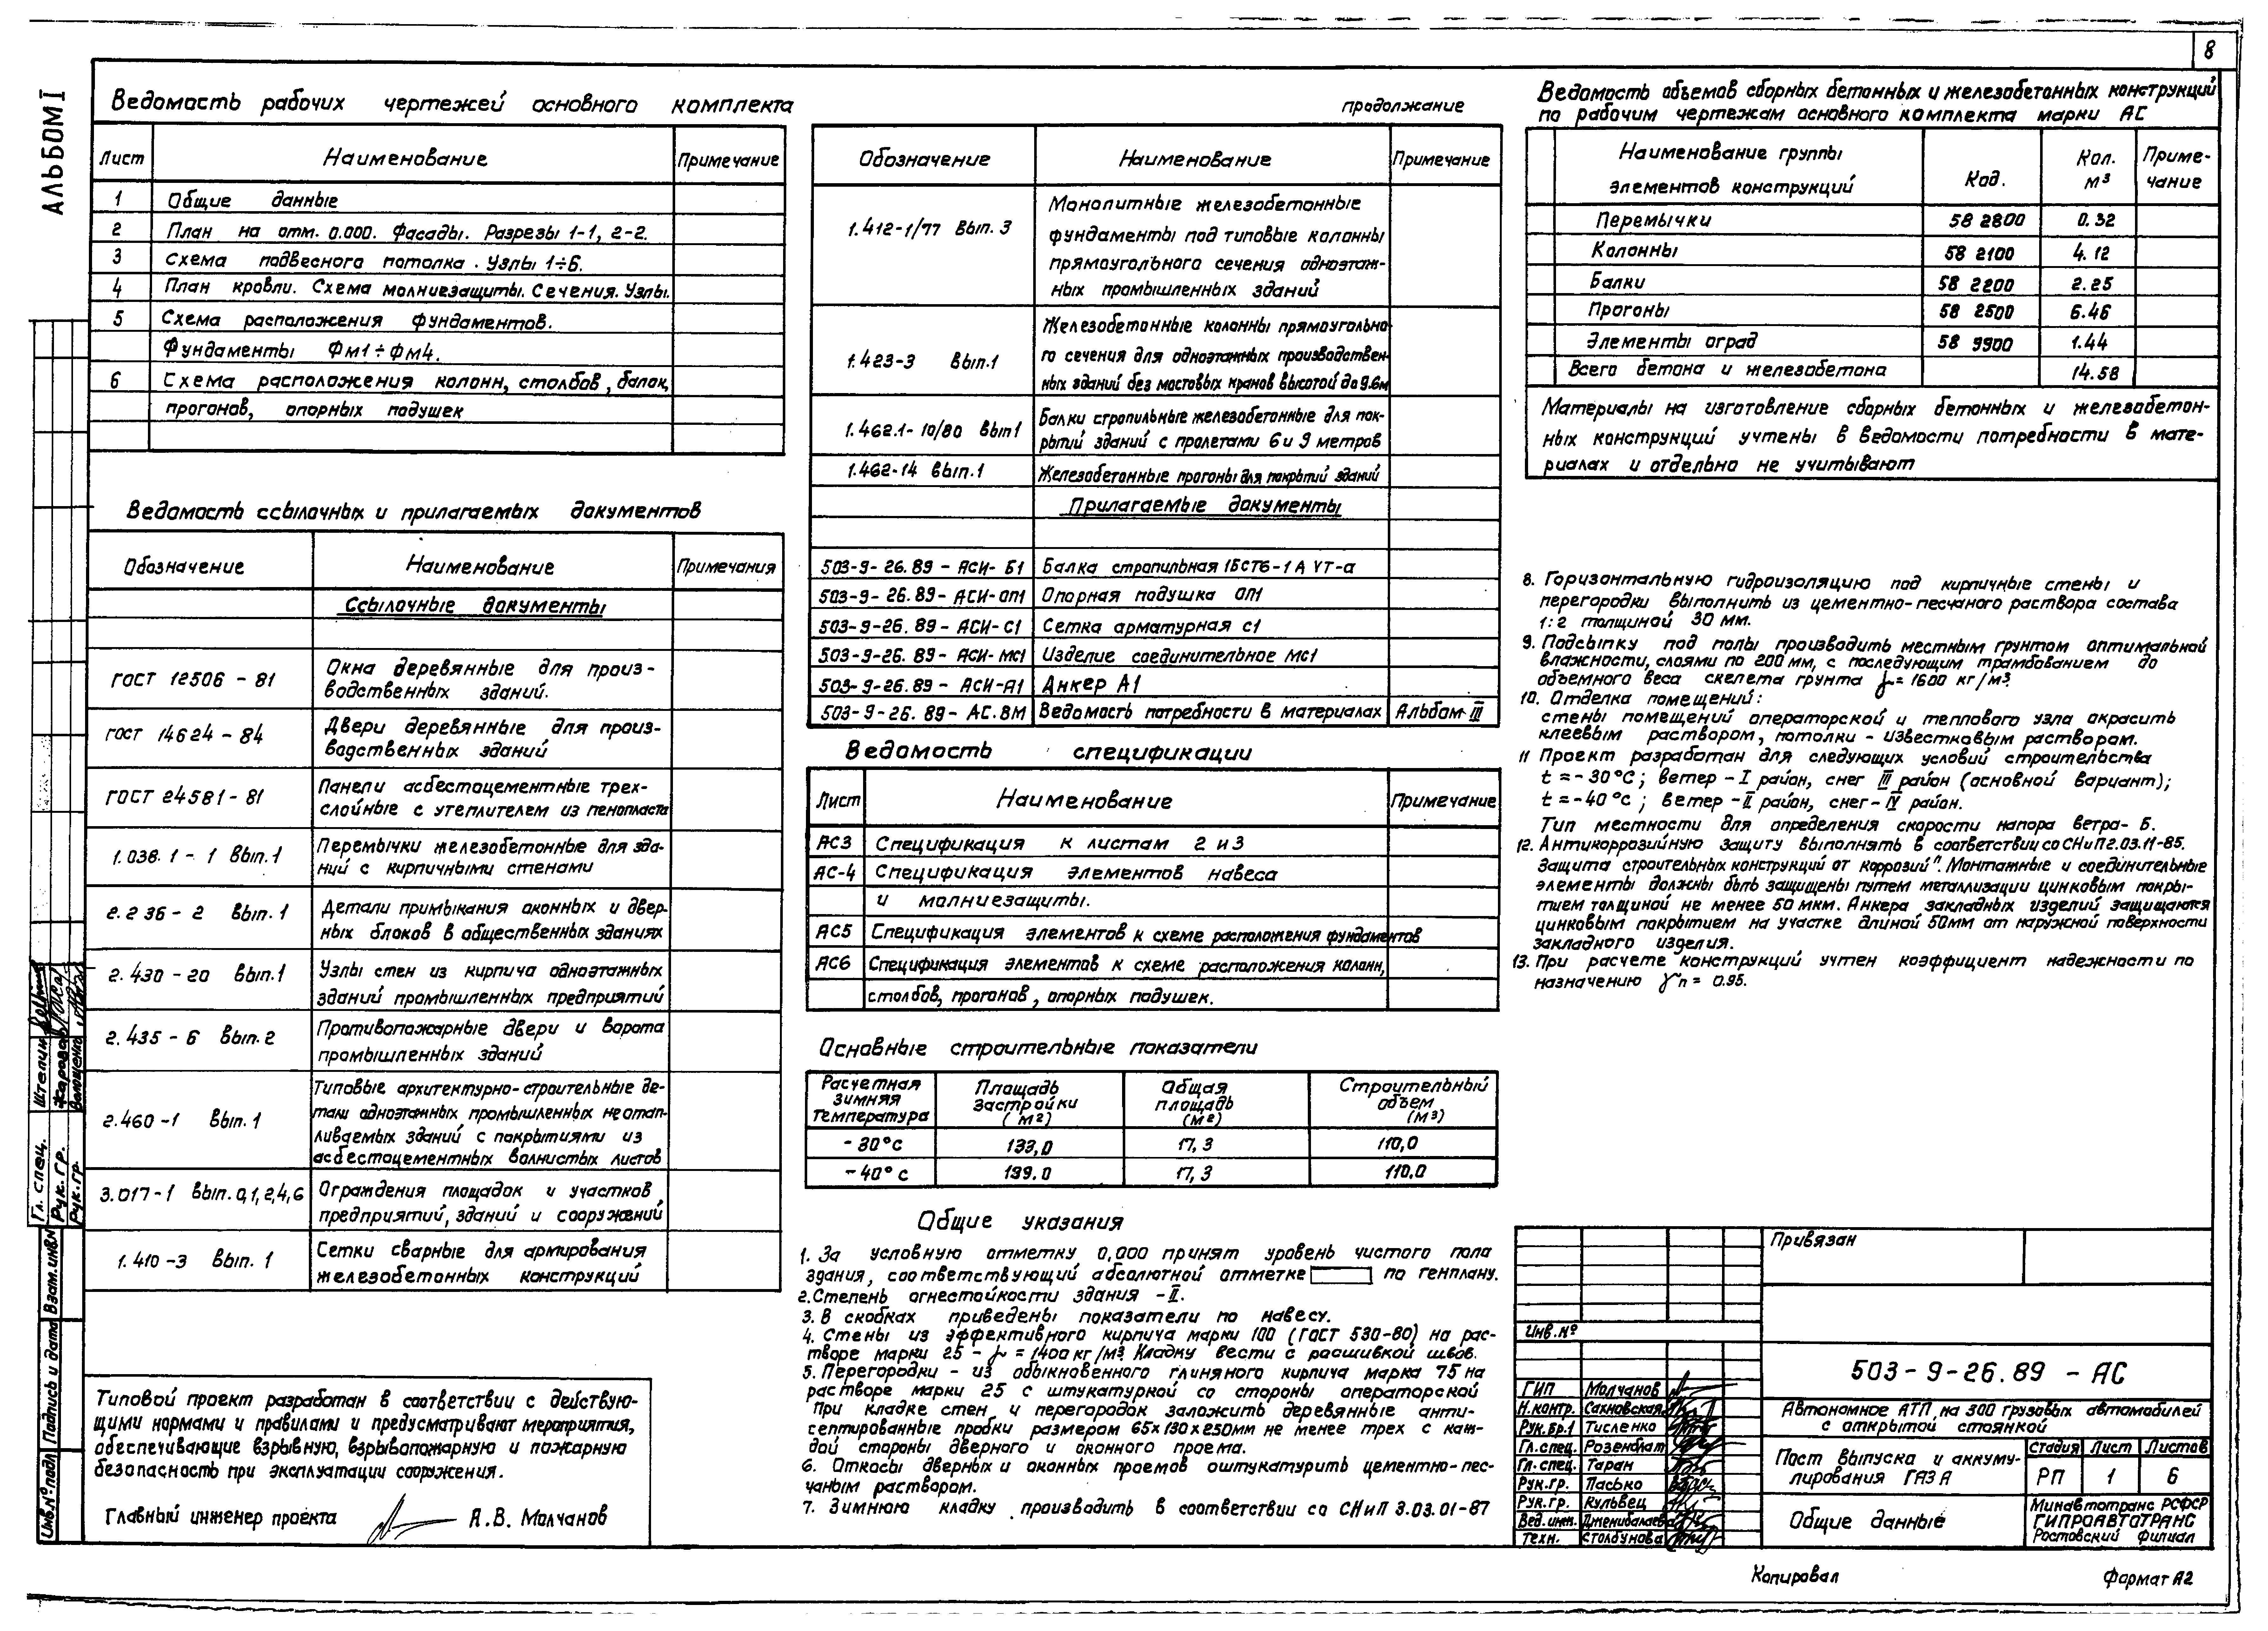 8
АЛЬБОМ I
Ведомость рабочих чертежей основного комплекта
Лист Наименование Примечание
1 Общие данные
2 План на отм. 0.000. Фасады. Разрезы 1-1, 2-2.
3 Схема подвесного потолка. Узлы 1÷6.
4 План кровли. Схема молниезащиты. Сечения. Узлы.
5 Схема расположения фундаментов.
Фундаменты Фм1÷Фм4.
6 Схема расположения колонн, столбов, балок,
прогонов, опорных подушек
Ведомость ссылочных и прилагаемых документов
Обозначение Наименование Примечания
Ссылочные документы
ГОСТ 12506-81 Окна деревянные для произ-
водственных зданий.
ГОСТ 14624-84 Двери деревянные для произ-
водственных зданий
ГОСТ 24581-81 Панели асбестоцементные трех-
слойные с утеплителем из пенопласта
1.038.1-1 Вып.1 Перемычки железобетонные для зда-
ний с кирпичными стенами
2.236-2 Вып.1 Детали примыкания оконных и двер-
ных блоков в общественных зданиях
2.430-20 Вып.1 Узлы стен из кирпича одноэтажных
зданий промышленных предприятий
2.435-6 Вып.2 Противопожарные двери и ворота
промышленных зданий
2.460-1 Вып.1 Типовые архитектурно-строительные де-
тали одноэтажных промышленных неотап-
ливаемых зданий с покрытиями из
асбестоцементных волнистых листов
3.017-1 Вып.0,1,2,4,6 Ограждения площадок и участков
предприятий, зданий и сооружений
1.410-3 Вып.1 Сетки сварные для армирования
железобетонных конструкций
Типовой проект разработан в соответствии с действую-
щими нормами и правилами и предусматривают мероприятия,
обеспечивающие взрывную, взрывопожарную и пожарную
безопасность при эксплуатации сооружения.
Главный инженер проекта А.В. Молчанов
продолжание
Обозначение Наименование Примечание
1.412-1/77 Вып.3 Монолитные железобетонные
фундаменты под типовые колонны
прямоугольного сечения одноэтаж-
ных промышленных зданий
1.423-3 Вып.1 Железобетонные колонны прямоугольно-
го сечения для одноэтажных производствен-
ных зданий без мостовых кранов высотой до 9.6м
1.462.1-10/80 Вып1 Балки стропильные железобетонные для пок-
рытий зданий с пролетами 6 и 9 метров
1.462-14 Вып.1 Железобетонные прогоны для покрытий зданий
Прилагаемые документы
503-9-26.89-АСИ-Б1 Балка стропильная 1БСТ6-1АVТ-а
503-9-26.89-АСИ-ОП1 Опорная подушка ОП1
503-9-26.89-АСИ-С1 Сетка арматурная С1
503-9-26.89-АСИ-МС1 Изделие соединительное МС1
503-9-26.89-АСИ-А1 Анкер А1
503-9-26.89-АС.ВМ Ведомость потребности в материалах Альбом III
Ведомость спецификации
Лист Наименование Примечание
АС3 Спецификация к листам 2 и 3
АС-4 Спецификация элементов навеса
и молниезащиты.
АС5 Спецификация элементов к схеме расположения фундаментов
АС6 Спецификация элементов к схеме расположения колонн,
столбов, прогонов, опорных подушек.
Основные строительные показатели
Расчетная зимняя температура Площадь застройки (м2) Общая площадь (м2) Строительный объем (м3)
-30°С 133,0 17,3 110,0
-40°С 139.0 17,3 110.0
Общие указания
1. За условную отметку 0,000 принят уровень чистого пола
здания, соответствующий абсолютной отметке по генплану.
2. Степень огнестойкости здания - II.
3. В скобках приведены показатели по навесу.
4. Стены из эффективного кирпича марки 100 (ГОСТ 530-80) на рас-
творе марки 25 - γ = 1400 кг/м3. Кладку вести с расшивкой швов.
5. Перегородки - из обыкновенного глиняного кирпича марка 75 на
растворе марки 25 с штукатуркой со стороны операторской
При кладке стен и перегородок заложить деревянные анти-
септированные пробки размером 65х130х250мм не менее трех с каж-
дой стороны дверного и оконного проема.
6. Откосы дверных и оконных проемов оштукатурить цементно-пес-
чаным раствором.
7. Зимнюю кладку производить в соответствии со СНиП 3.03.01-87
Ведомость объемов сборных бетонных и железобетонных конструкций
по рабочим чертежам основного комплекта марки АС
Наименование группы элементов конструкций Код. Кол. м3 Приме-чание
Перемычки 58 2800 0.32
Колонны 58 2100 4.12
Балки 58 2200 2.25
Прогоны 58 2500 6.46
Элементы оград 58 9900 1.44
Всего бетона и железобетона 14.58
Материалы на изготовление сборных бетонных и железобетон-
ных конструкций учтены в ведомости потребности в мате-
риалах и отдельно не учитывают
8. Горизонтальную гидроизоляцию под кирпичные стены и
перегородки выполнить из цементно-песчаного раствора состава
1:2 толщиной 30 мм.
9. Подсыпку под полы производить местным грунтом оптимальной
влажности, слоями по 200 мм, с последующим трамбованием до
объемного веса скелета грунта γ = 1600 кг/м3.
10. Отделка помещений:
стены помещений операторской и теплового узла окрасить
клеевым раствором, потолки - известковым раствором.
11 Проект разработан для следующих условий строительства
t = -30°С; ветер - I район, снег III район (основной вариант);
t = -40°С; ветер - II район, снег - IV район.
Тип местности для определения скорости напора ветра - Б.
12. Антикоррозийную защиту выполнять в соответствии со СНиП 2.03.11-85.
Защита строительных конструкций от коррозий". Монтажные и соединительные
элементы должны быть защищены путем металлизации цинковым покры-
тием толщиной не менее 50 мкм. Анкера закладных изделий защищаются
цинковым покрытием на участке длиной 50мм от наружной поверхности
закладного изделия.
13. При расчете конструкций учтен коэффициент надежности по
назначению γn = 0.95.
Привязан
Инв.№
503-9-26.89-АС
ГИП Молчанов
Н.контр. Сахновская
Рук.бр.1 Тисленко
Гл.спец. Розенблат
Гл.спец. Таран
Рук.гр. Пасько
Рук.гр. Кульвец
Вед.инж.
Техн. Столбунова
Автономное АТП на 300 грузовых автомобилей
с открытой стоянкой
Пост выпуска и аккуму-
лирования ГАЗА
Стадия Лист Листов
РП 1 6
Общие данные
Минавтотранс РСФСР
ГИПРОАВТОТРАНС
Ростовский филиал
Копировал Формат А2
Гл. спец. Штепин
Рук.гр. Жарова
Рук.гр. Волощенко
Взам.инв.№
Подпись и дата
Инв.№ подл